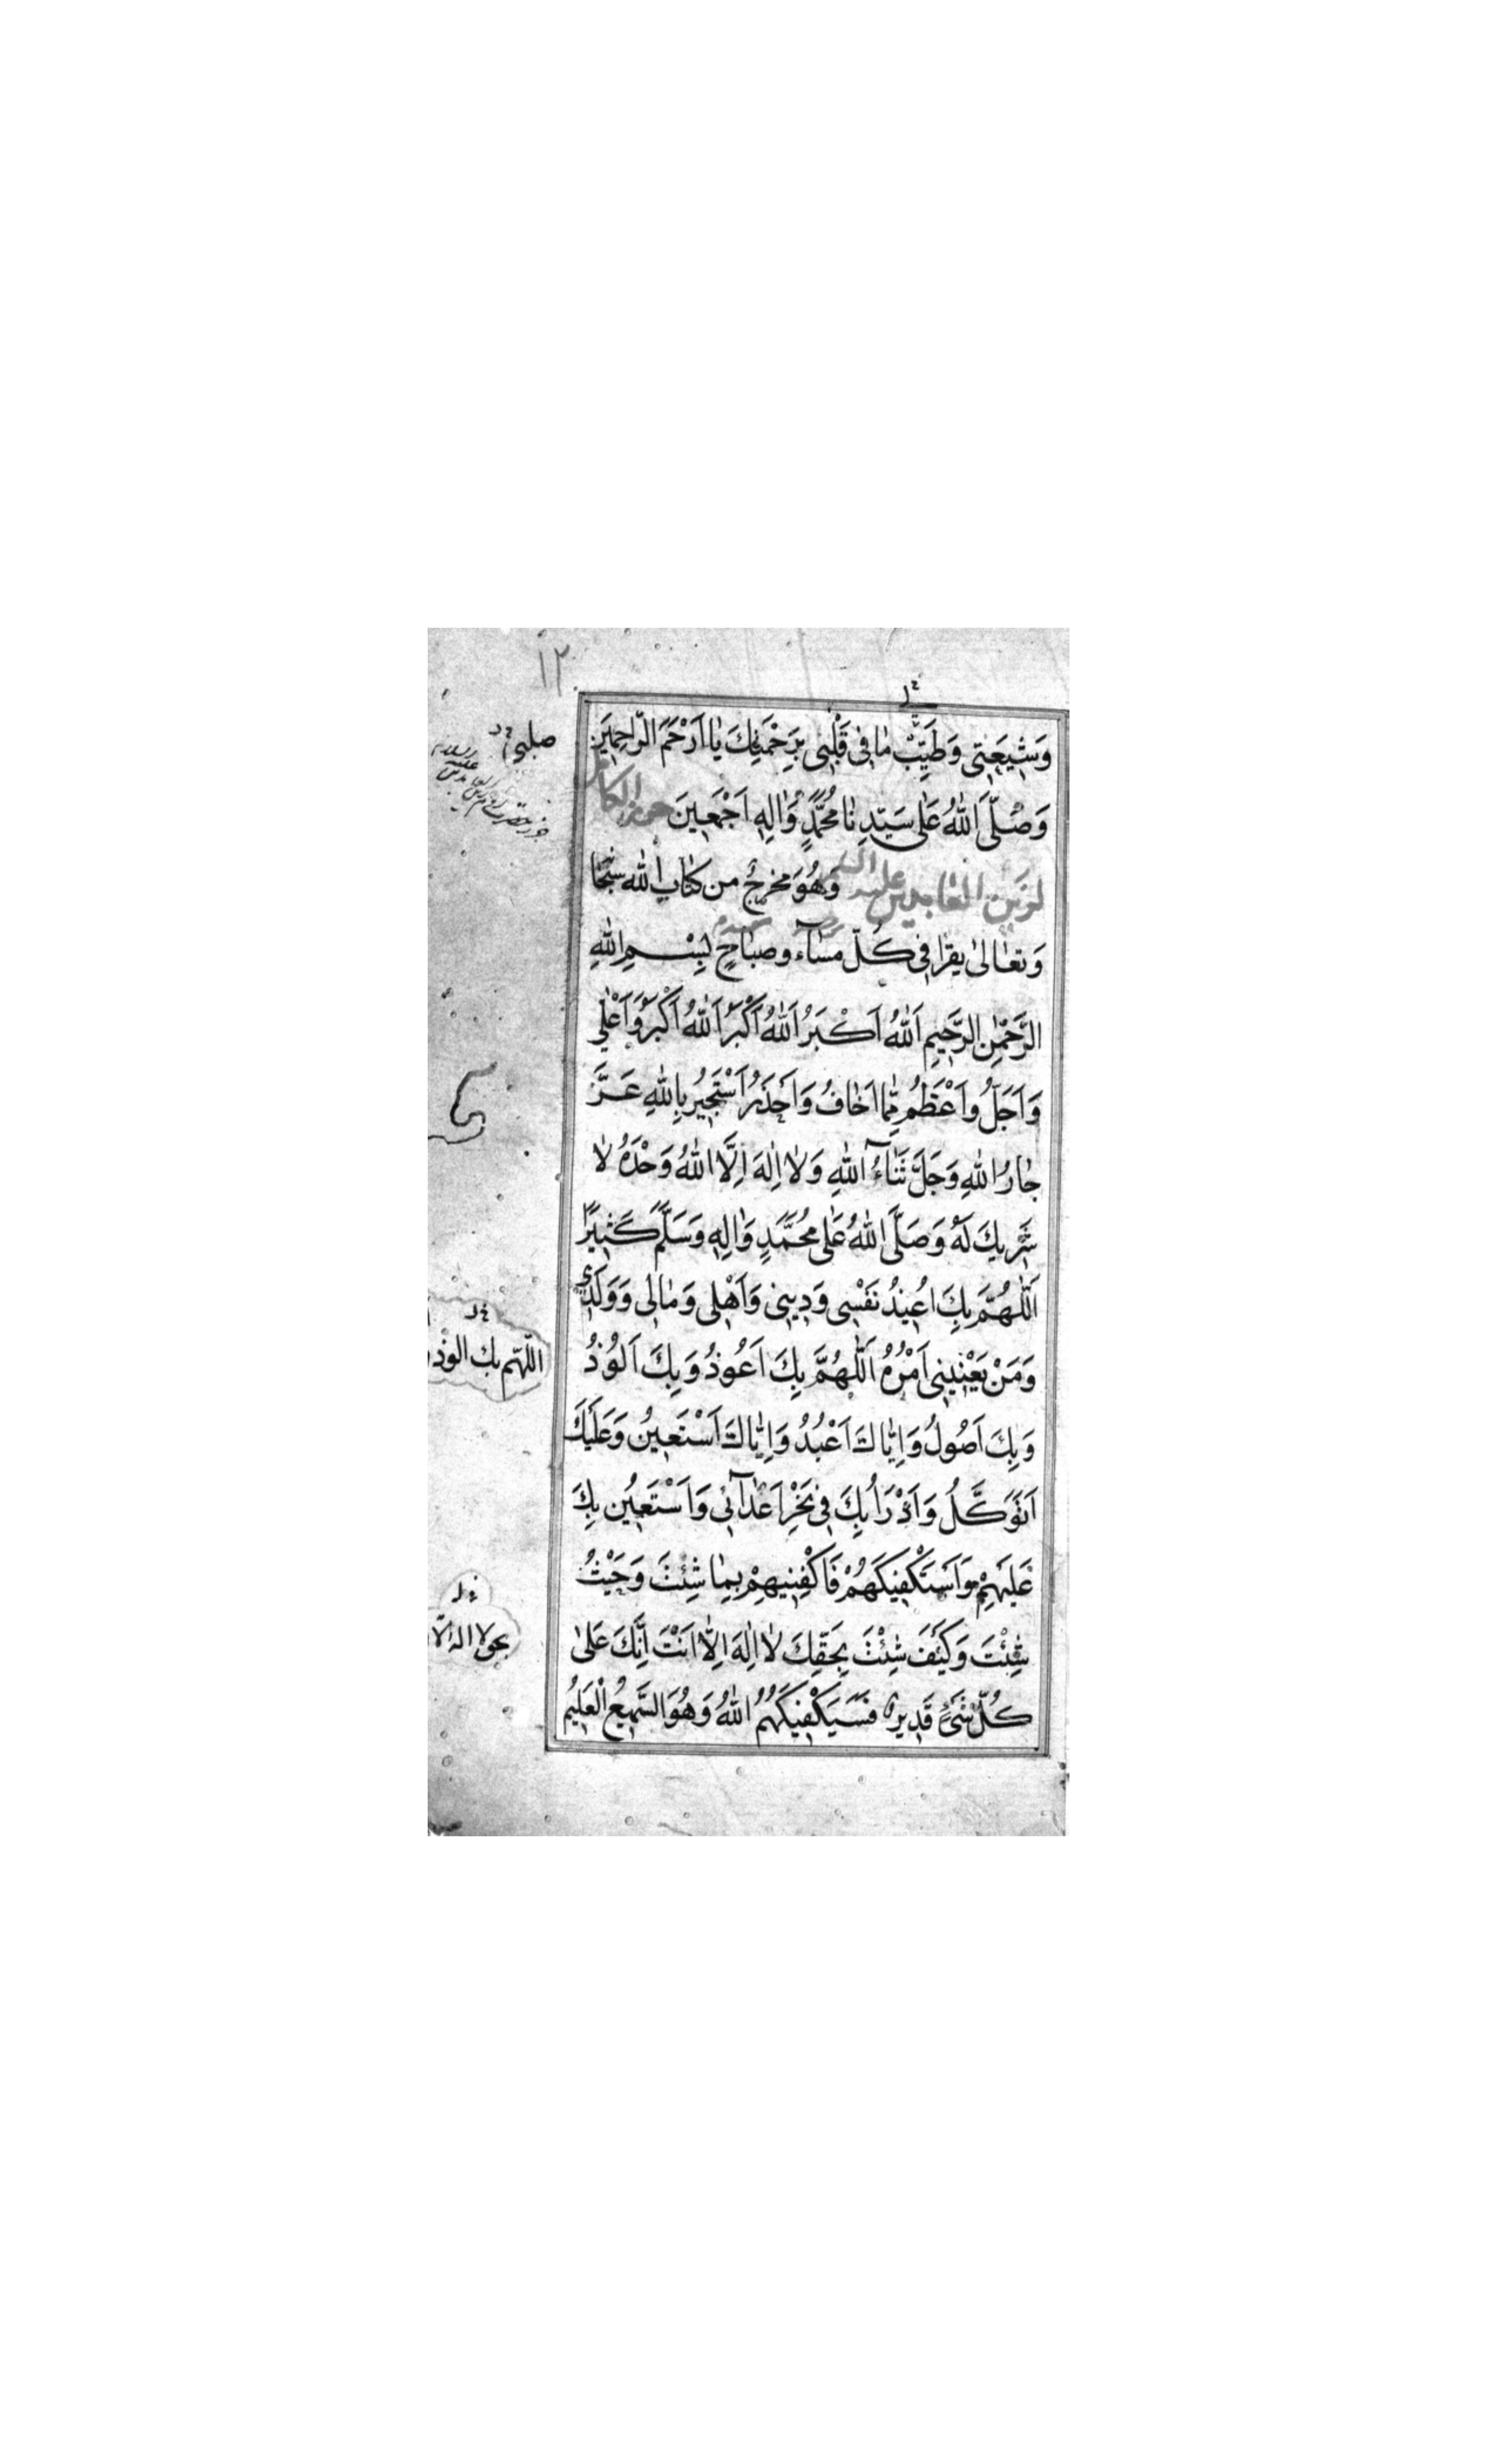 ١٢
وَشِيعَتِي وَطَيِّبْ مٰا فِي قَلْبِي بِرَحْمَتِكَ يٰا اَرْحَمَ الرّاحِمِينَ
وَصَلَّى اللهُ عَلٰى سَيِّدِنٰا مُحَمَّدٍ وَاٰلِهِ اَجْمَعِينَ حرز الكامل
لزين العابدين عليه السلم وَهُوَ مخرجٌ من كتابِ الله سُبحٰا
وَتعٰالىٰ يقرا في كُلّ مسٰآء وصبٰاحٍ بِسْمِ اللهِ
الرَّحْمٰنِ الرَّحِيمِ اَللهُ اَكْبَرُ اَللهُ اَكْبَرُ اَللهُ اَكْبَرُ وَاَعْلٰي
وَاَجَلُّ وَاَعْظَمُ مِمّٰا اَخٰافُ وَاَحْذَرُ اَسْتَجِيرُ بِاللهِ عَزَّ
جٰارُ اللهِ وَجَلَّ ثَنٰآءُ اللهِ وَلٰا اِلٰهَ اِلَّا اللهُ وَحْدَهُ لٰا
شَرِيكَ لَهُ وَصَلَّى اللهُ عَلٰى مُحَمَّدٍ وَاٰلِهِ وَسَلَّمَ كَثِيرًا
اَللّٰهُمَّ بِكَ اُعِيذُ نَفْسِي وَدِينِي وَاَهْلِي وَمٰالِي وَوَلَدِي
وَمَنْ يَعْنِينِي اَمْرُهُ اَللّٰهُمَّ بِكَ اَعُوذُ وَبِكَ اَلُوذُ
وَبِكَ اَصُولُ وَاِيّٰاكَ اَعْبُدُ وَاِيّٰاكَ اَسْتَعِينُ وَعَلَيْكَ
اَتَوَكَّلُ وَاَدْرَاُ بِكَ فِي نَحْرِ اَعْدٰآئِي وَاَسْتَعِينُ بِكَ
عَلَيْهِمْ وَاَسْتَكْفِيكَهُمْ فَاكْفِنِيهِمْ بِمٰا شِئْتَ وَحَيْثُ
شِئْتَ وَكَيْفَ شِئْتَ بِحَقِّكَ لٰا اِلٰهَ اِلّٰا اَنْتَ اِنَّكَ عَلىٰ
كُلِّ شَيْءٍ قَدِيرٌ فَسَيَكْفِيكَهُمُ اللهُ وَهُوَ السَّمِيعُ الْعَلِيمُ
صلبي
اللّهم بك الوذ
بحولا اله الّا